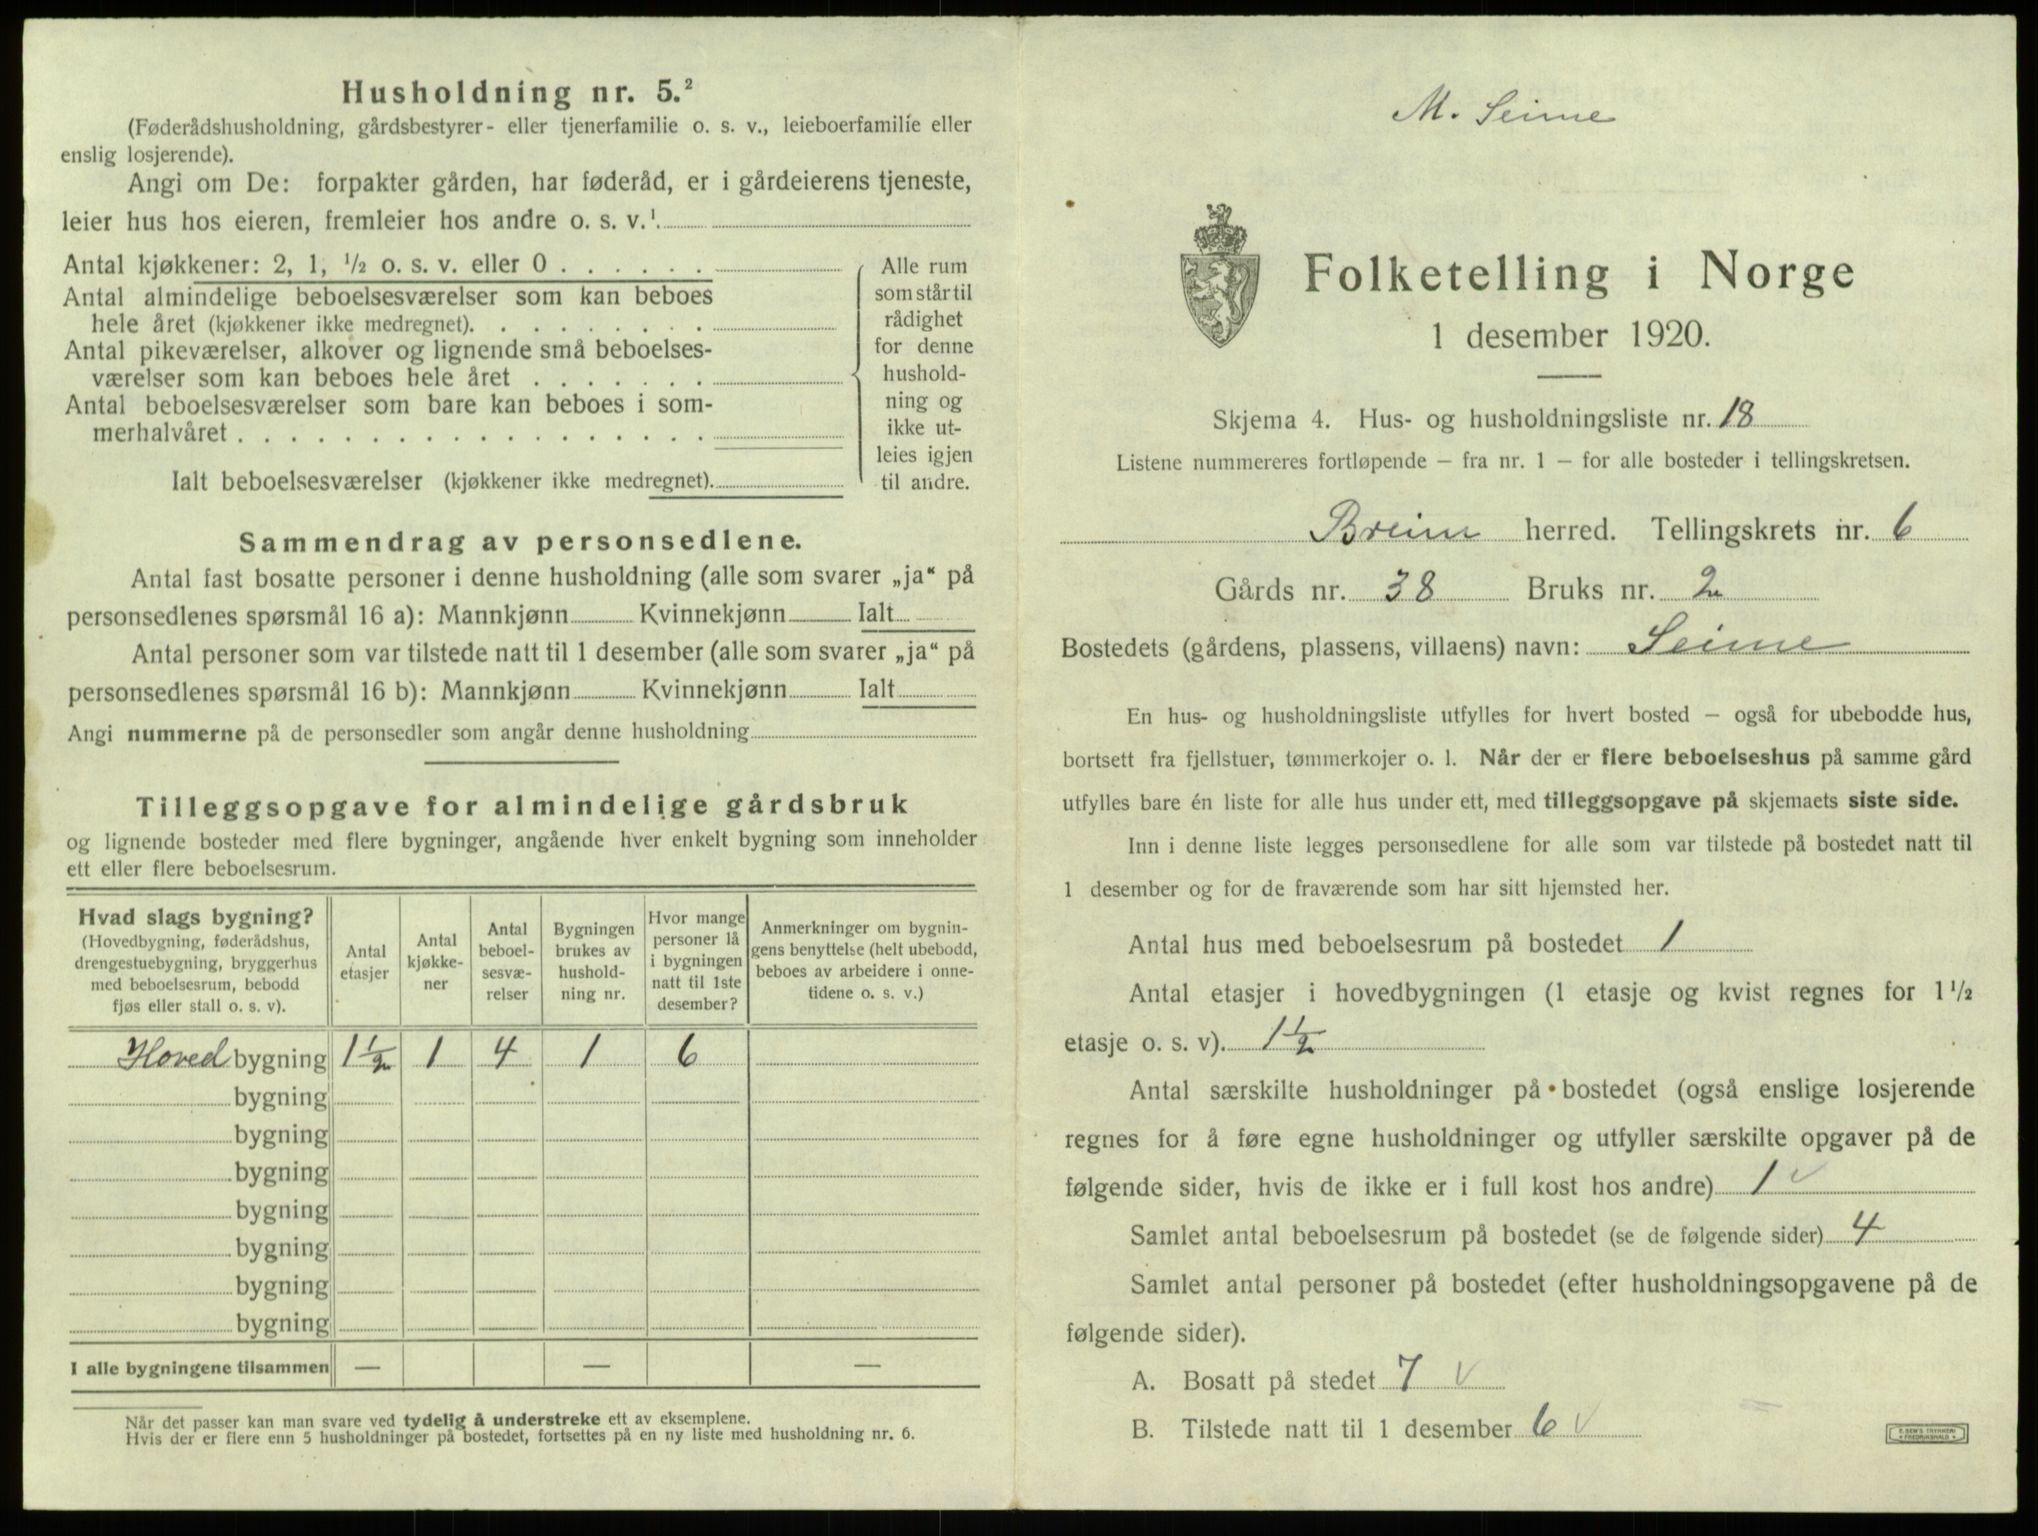 Husholdning nr. 5.²
(Føderådshusholdning, gårdsbestyrer- eller tjenerfamilie o. s. v., leieboerfamilie eller
enslig losjerende).
Angi om De: forpakter gården, har føderåd, er i gårdeierens tjeneste,
leier hus hos eieren, fremleier hos andre o. s. v.¹
Antal kjøkkener: 2, 1, ½ o. s. v. eller 0 . . . . . .
Antal almindelige beboelsesværelser som kan beboes
hele året (kjøkkener ikke medregnet). . . . . . . . .
Antal pikeværelser, alkover og lignende små beboelses-
værelser som kan beboes hele året . . . . . . .
Antal beboelsesværelser som bare kan beboes i som-
merhalvåret . . . . . . . . . . . . . . . . . .
Ialt beboelsesværelser (kjøkkener ikke medregnet).
Alle rum
som står til
rådighet
for denne
hushold-
ning og
ikke ut-
leies igjen
til andre.
Sammendrag av personsedlene.
Antal fast bosatte personer i denne husholdning (alle som svarer „ja“ på
personsedlenes spørsmål 16 a): Mannkjønn Kvinnekjønn Ialt
Antal personer som var tilstede natt til 1 desember (alle som svarer „ja“ på
personsedlenes spørsmål 16 b): Mannkjønn Kvinnekjønn Ialt
Angi nummerne på de personsedler som angår denne husholdning
Tilleggsopgave for almindelige gårdsbruk
og lignende bosteder med flere bygninger, angående hver enkelt bygning som inneholder
ett eller flere beboelsesrum.
Hvad slags bygning?
(Hovedbygning, føderådshus,
drengestuebygning, bryggerhus
med beboelsesrum, bebodd
fjøs eller stall o. s. v).
Antal
etasjer
Antal
kjøkke-
ner
Antal
beboel-
sesvæ-
relser
Bygningen
brukes av
hushold-
ning nr.
Hvor mange
personer lå
i bygningen
natt til 1ste
desember?
Anmerkninger om bygnin-
gens benyttelse (helt ubebodd,
beboes av arbeidere i onne-
tidene o. s. v.)
Hoved bygning 1½ 1 4 1 6
bygning
bygning
bygning
bygning
bygning
bygning
bygning
I alle bygningene tilsammen — — —
Når det passer kan man svare ved tydelig å understreke ett av eksemplene.
Hvis der er flere enn 5 husholdninger på bostedet, fortsettes på en ny liste med husholdning nr. 6.
M. Seime
Folketelling i Norge
1 desember 1920.
Skjema 4. Hus- og husholdningsliste nr. 18
Listene nummereres fortløpende – fra nr. 1 – for alle bosteder i tellingskretsen.
Breim herred. Tellingskrets nr. 6
Gårds nr. 38 Bruks nr. 2
Bostedets (gårdens, plassens, villaens) navn: Seime
En hus- og husholdningsliste utfylles for hvert bosted – også for ubebodde hus,
bortsett fra fjellstuer, tømmerkojer o. l. Når der er flere beboelseshus på samme gård
utfylles bare én liste for alle hus under ett, med tilleggsopgave på skjemaets siste side.
Inn i denne liste legges personsedlene for alle som var tilstede på bostedet natt til
1 desember og for de fraværende som har sitt hjemsted her.
Antal hus med beboelsesrum på bostedet 1
Antal etasjer i hovedbygningen (1 etasje og kvist regnes for 1½
etasje o. s. v). 1½
Antal særskilte husholdninger på bostedet (også enslige losjerende
regnes for å føre egne husholdninger og utfyller særskilte opgaver på de
følgende sider, hvis de ikke er i full kost hos andre) 1 v
Samlet antal beboelsesrum på bostedet (se de følgende sider) 4
Samlet antal personer på bostedet (efter husholdningsopgavene på de
følgende sider).
A. Bosatt på stedet 7 v
B. Tilstede natt til 1 desember 6 v
E. SEM'S TRYKKERI
FREDRIKSHALD